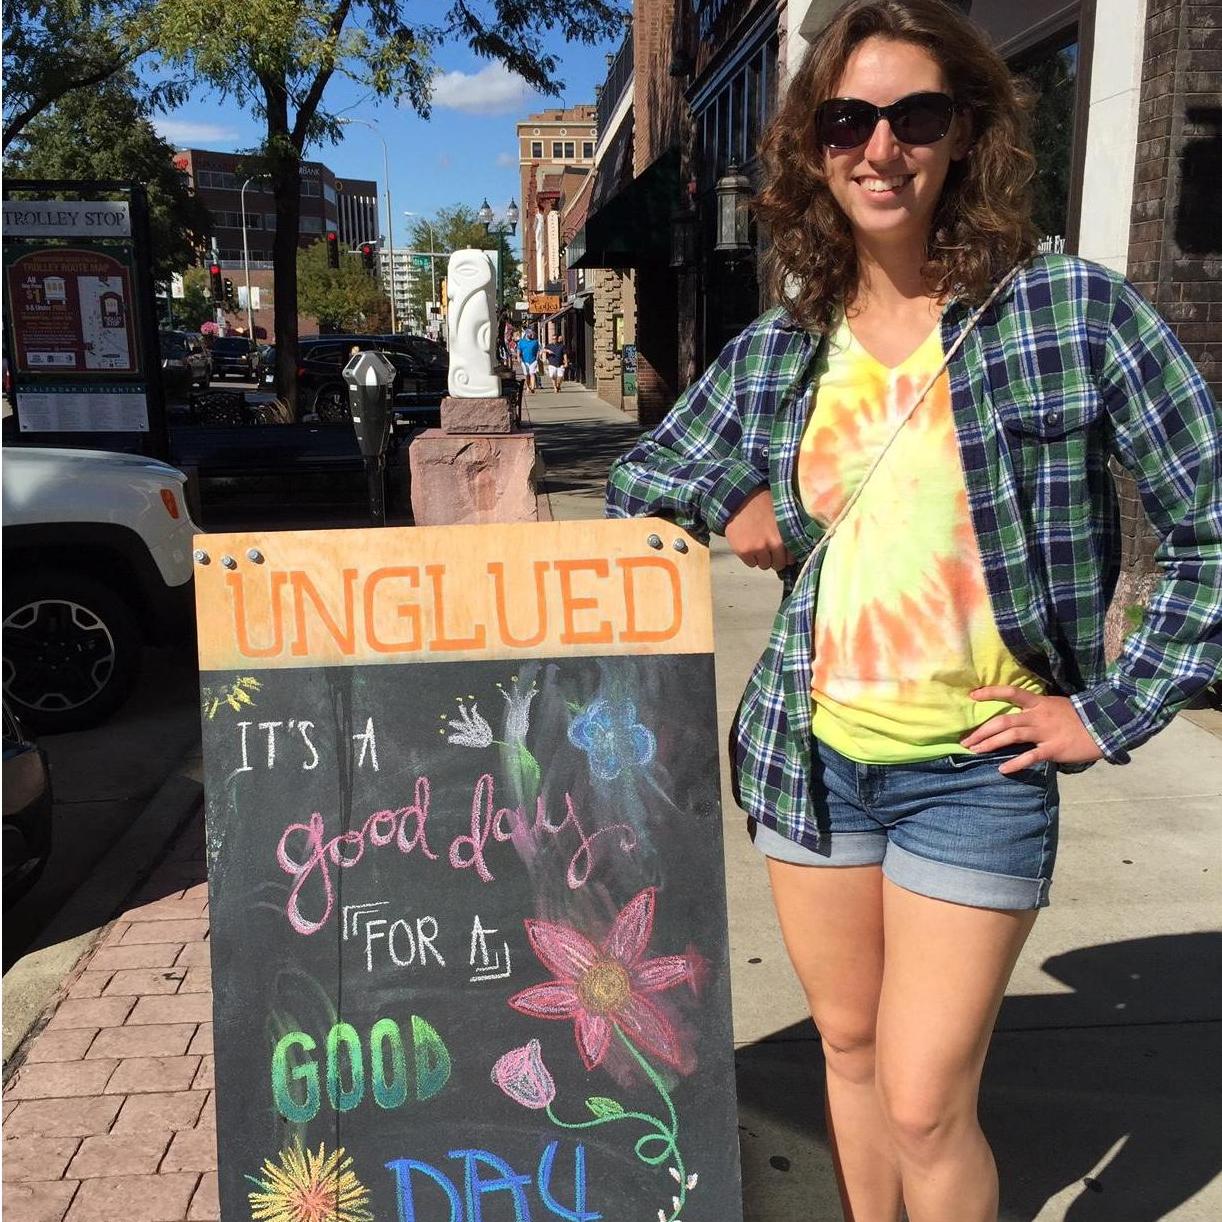 TROLLEY STOP
TROLLEY ROUTE MAP
All
$1
CALENDAR OF EVENTS
BANK
Coffee
UNGLUED
IT'S A
good day
FOR A
GOOD
DAY